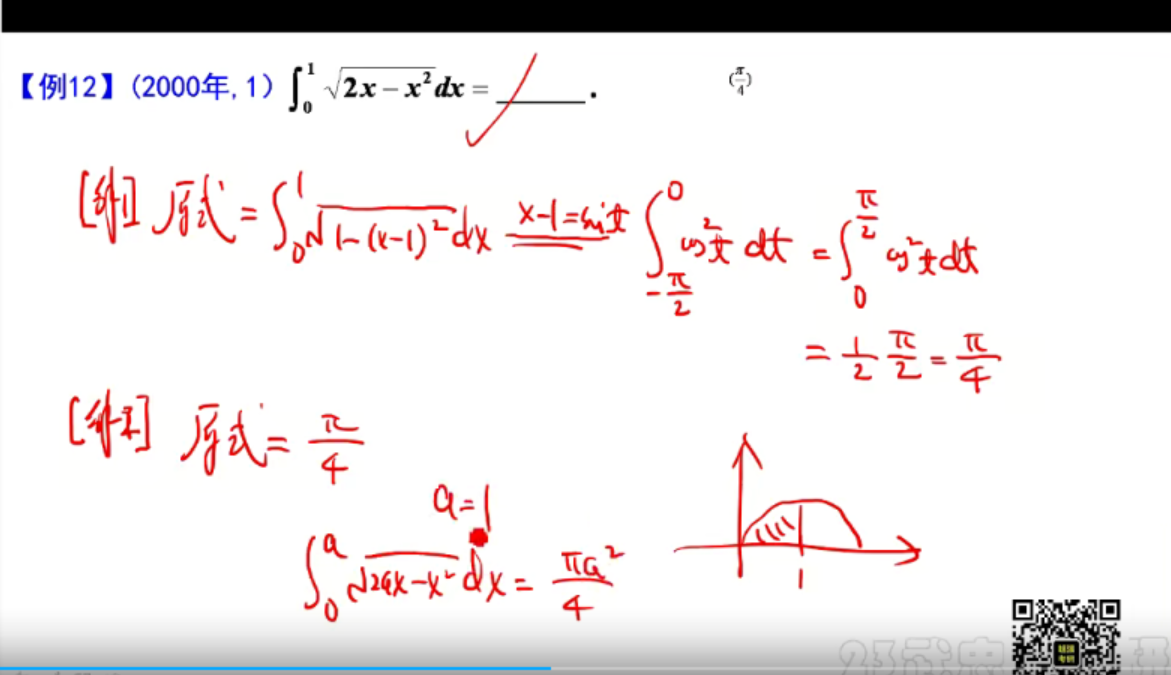 【例12】(2000年,1) ∫₀¹ √(2x − x²) dx = ______ . (π/4)
原式 = ∫₀¹ √(1−(x−1)²) dx x−1=sin t ∫_{-π/2}^{0} cos²t dt = ∫_{0}^{π/2} cos²t dt
= 1/2 π/2 = π/4
原式 = π/4
a=1
∫₀ᵃ √(2ax−x²) dx = πa²/4
1